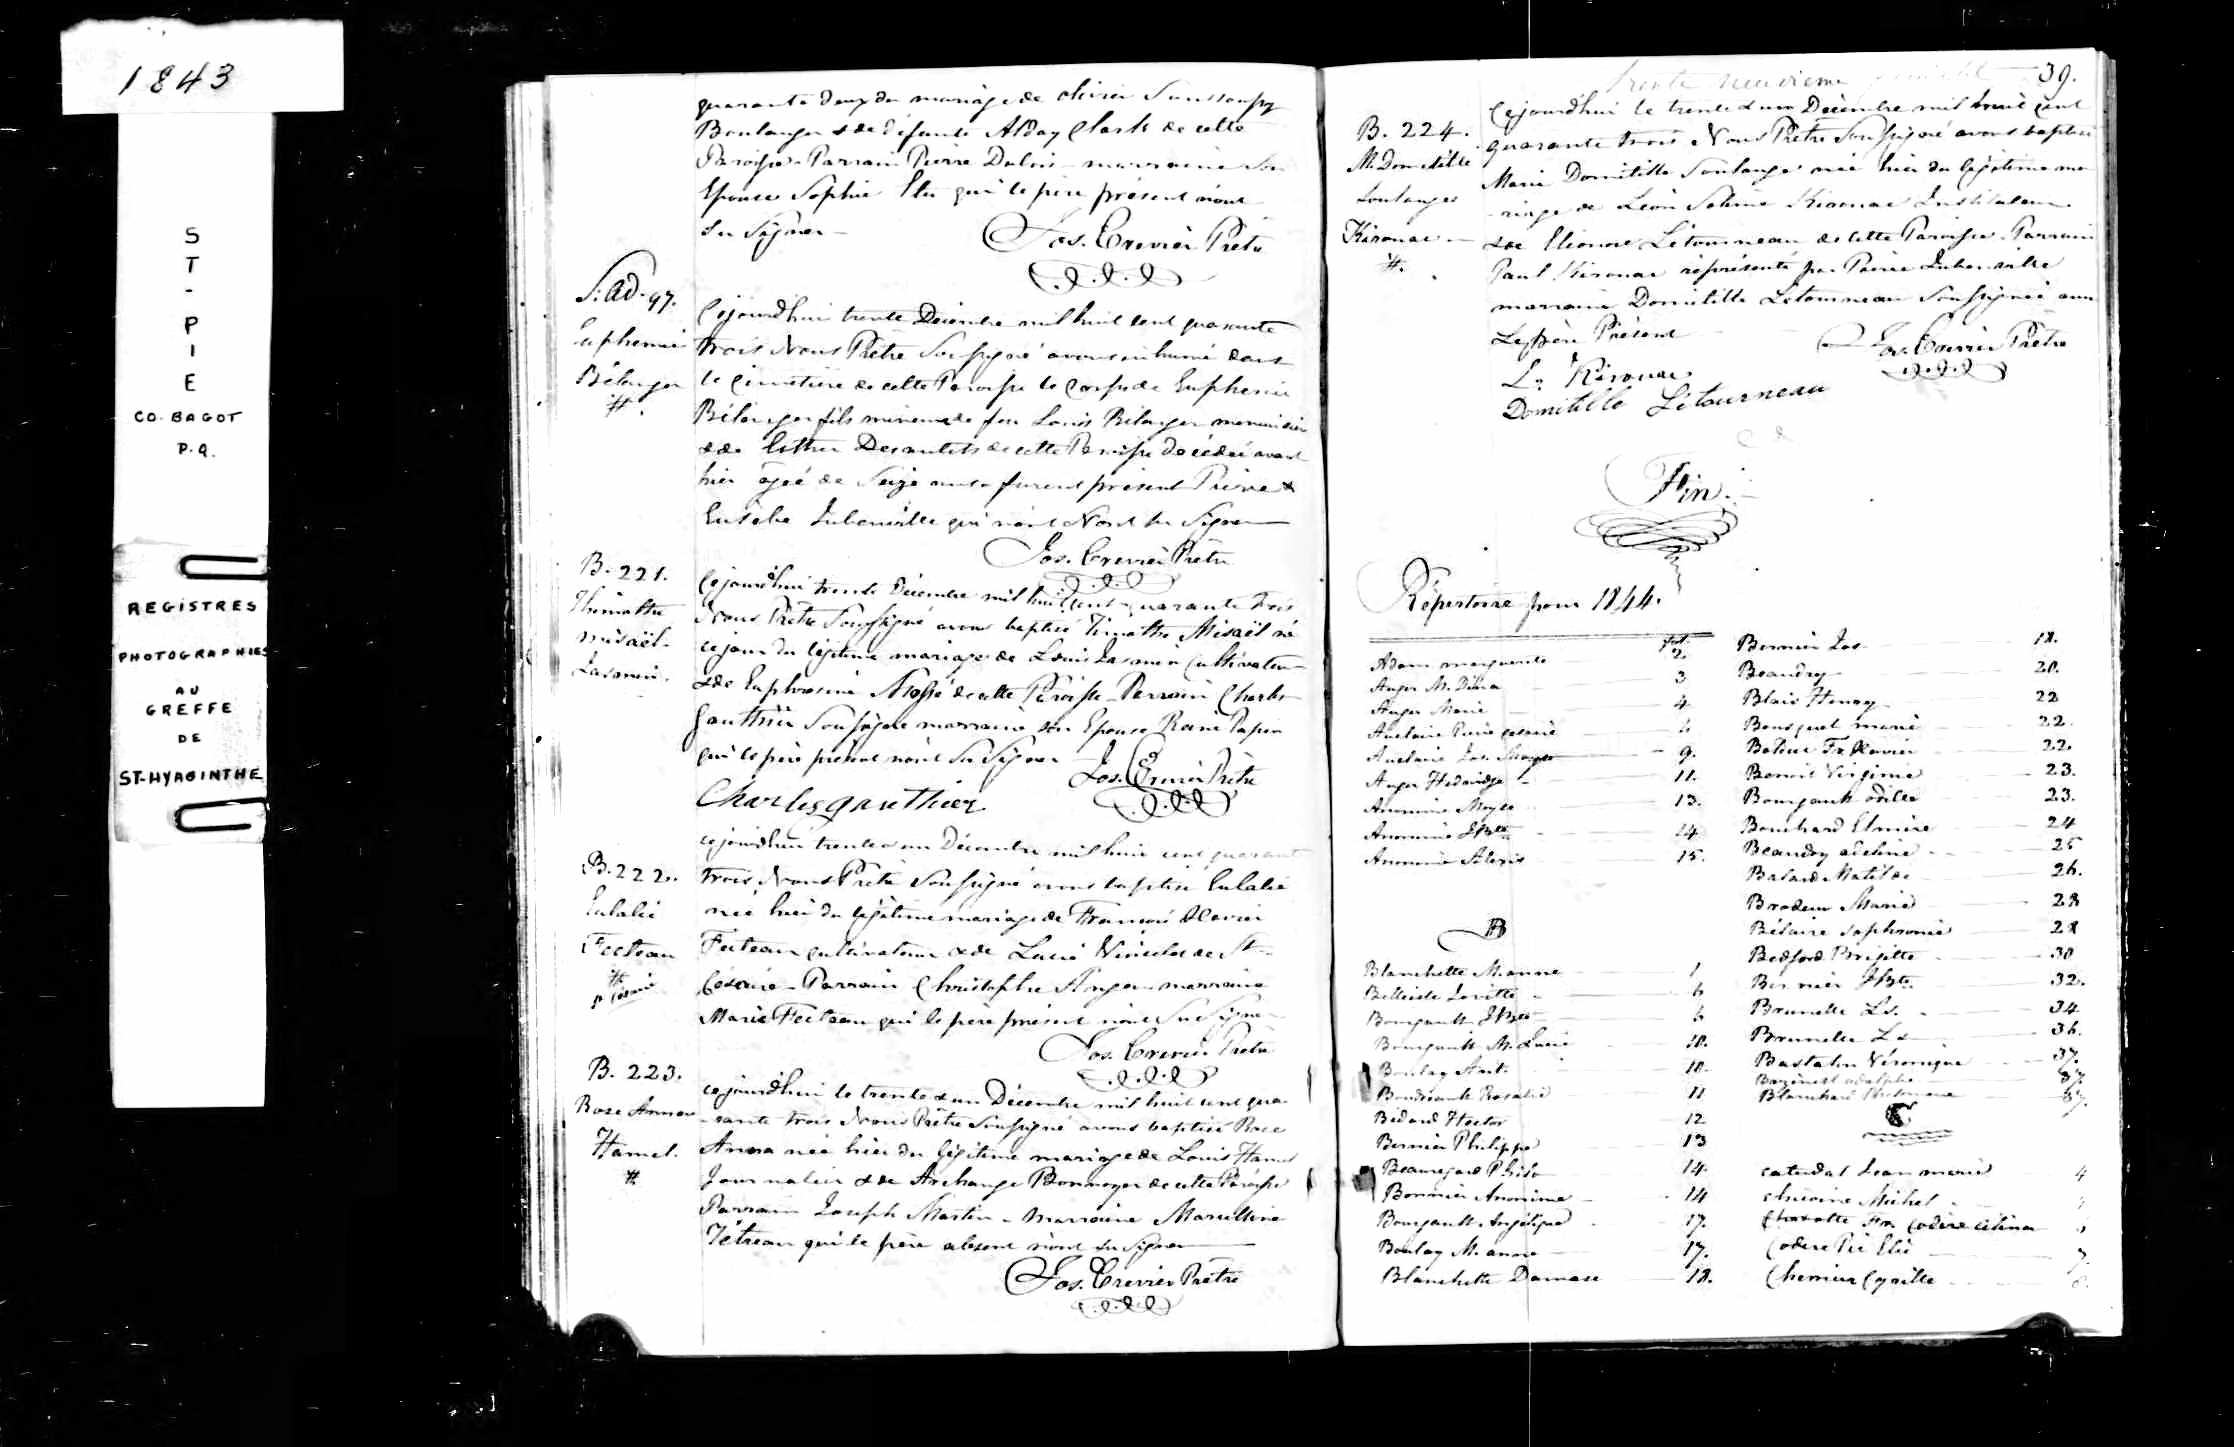 1843
ST-PIE
CO. BAGOT
P.Q.
REGISTRES
PHOTOGRAPHIES
AU
GREFFE
DE
ST-HYACINTHE
quarante deux du mariage de Olivier
Boulanger & de défunte Alday Clark de cette
Paroisse. Parrain Pierre Dubois marraine son
Epouse Sophie qui le père présent n'ont
su signer —
Jos. Crevier Ptre
S. Ad. 97.
Euphemie
Bélanger
#.
Cejourdhui trente Décembre mil huit cent quarante
trois Nous Prêtre Soussigné avons inhumé dans
le cimetière de cette Paroisse le corps de Euphemie
Bélanger fils mineur de feu Louis Bélanger menuisier
& de Esther Desautels de cette Paroisse décédé avant
hier agé de Seize ans furent présent Pierre &
Eusèbe Jubenville qui n'ont su signer
Jos. Crevier Prêtre
B. 221.
Thimothe
misaël
Jasmin.
Cejourdhui trente Décembre mil huit cent quarante trois
Nous Prêtre Soussigné avons baptisé Timothe Misaël né
ce jour du légitime mariage de Louis Jasmin Cultivateur
& de Euphrosine de cette Paroisse Parrain Charles
Gauthier Soussigné marraine son Epouse Reine Papin
qui le père présent n'ont su signer
Jos. Crevier Prêtre
Charles gauthier
B. 222.
Eulalie
Fecteau
#
St Césaire
cejourdhui trente & un Décembre mil huit cent quarante
trois Nous Prêtre Soussigné avons baptisé Eulalie
née hier du légitime mariage de François Xavier
Fecteau cultivateur & de Lucie de St
Césaire. Parrain Christophe Anger marraine
Marie Fecteau qui le père présent n'ont su signer
Jos. Crevier Prêtre
B. 223.
Roze Anna
Hamel.
#
cejourdhui le trente & un Décembre mil huit cent qua
-rante trois Nous Prêtre Soussigné avons baptisé Roze
Anna née hier du légitime mariage de Louis Hamel
Journalier & de Archange Bonnoyer de cette Paroisse
Parrain Joseph Martin - Marraine Marcelline
Tétreau qui le père absent n'ont su signer
Jos. Crevier Prêtre
trente neuvieme 39.
B. 224.
M. Domitille
Soulanges
Kirouac —
#.
Cejourdhui le trente & un Décembre mil huit cent
quarante trois Nous Prêtre Soussigné avons baptisé
Marie Domitille Soulanges née hier du légitime ma
-riage de Léon Solime Kirouac Instituteur
& de Eléonore Létourneau de cette Paroisse. Parrain
Paul Kirouac représenté par Pierre Jubenville
marraine Domitille Létourneau Soussignée avec
Le père Présent
Jos. Crevier Prêtre
L. Kirouac
Domitille Létourneau
Fin.
Répertoire pour 1844.
Adam marguerite 2.
Anger M. 3
Anger Marie 4
Auclaire Pierre
Auclaire Jos. 9.
Anger Hedwidge 11.
Anonime Moyse 13.
Anonime JBte 14
Anonime Alexis 15.
B
Blanchette M. anne 1
Bellisle 6
Bourgault JBte 6
Bourgault M. Lucie 10.
Boulay Ant. 10.
Boudriault Rosalie 11
Bédard Hector 12
Bernier Philippe 13
Beauregard 14
Bonnier Anonime 14
Bourgault Angélique 17.
Boulay M. anne 17.
Blanchette Damase 18.
Bernier Jos. 18.
Beaudry 20.
Blais Henry 22
Bousquet marie 22.
Fr. Xavier 22.
Benoit Virginie 23.
Bourgault odille 23.
Bouchard Elmire 24
Beaudry adeline 25
Balard Matilde 26.
Brodeur Marie 28
Bélaire Sophronie 28
Bedford Brigitte 30
Bernier JBte 32.
Brunelle Ls. 34
Brunelle Ls 36.
Véronique 37.
adolphe 37.
Blanchard Philomene 37.
C
catudal Jean marie 4
Michel
Charotte Fr. Codère célina
Codere Pie Elie 7.
Chenier Cyrille 8.